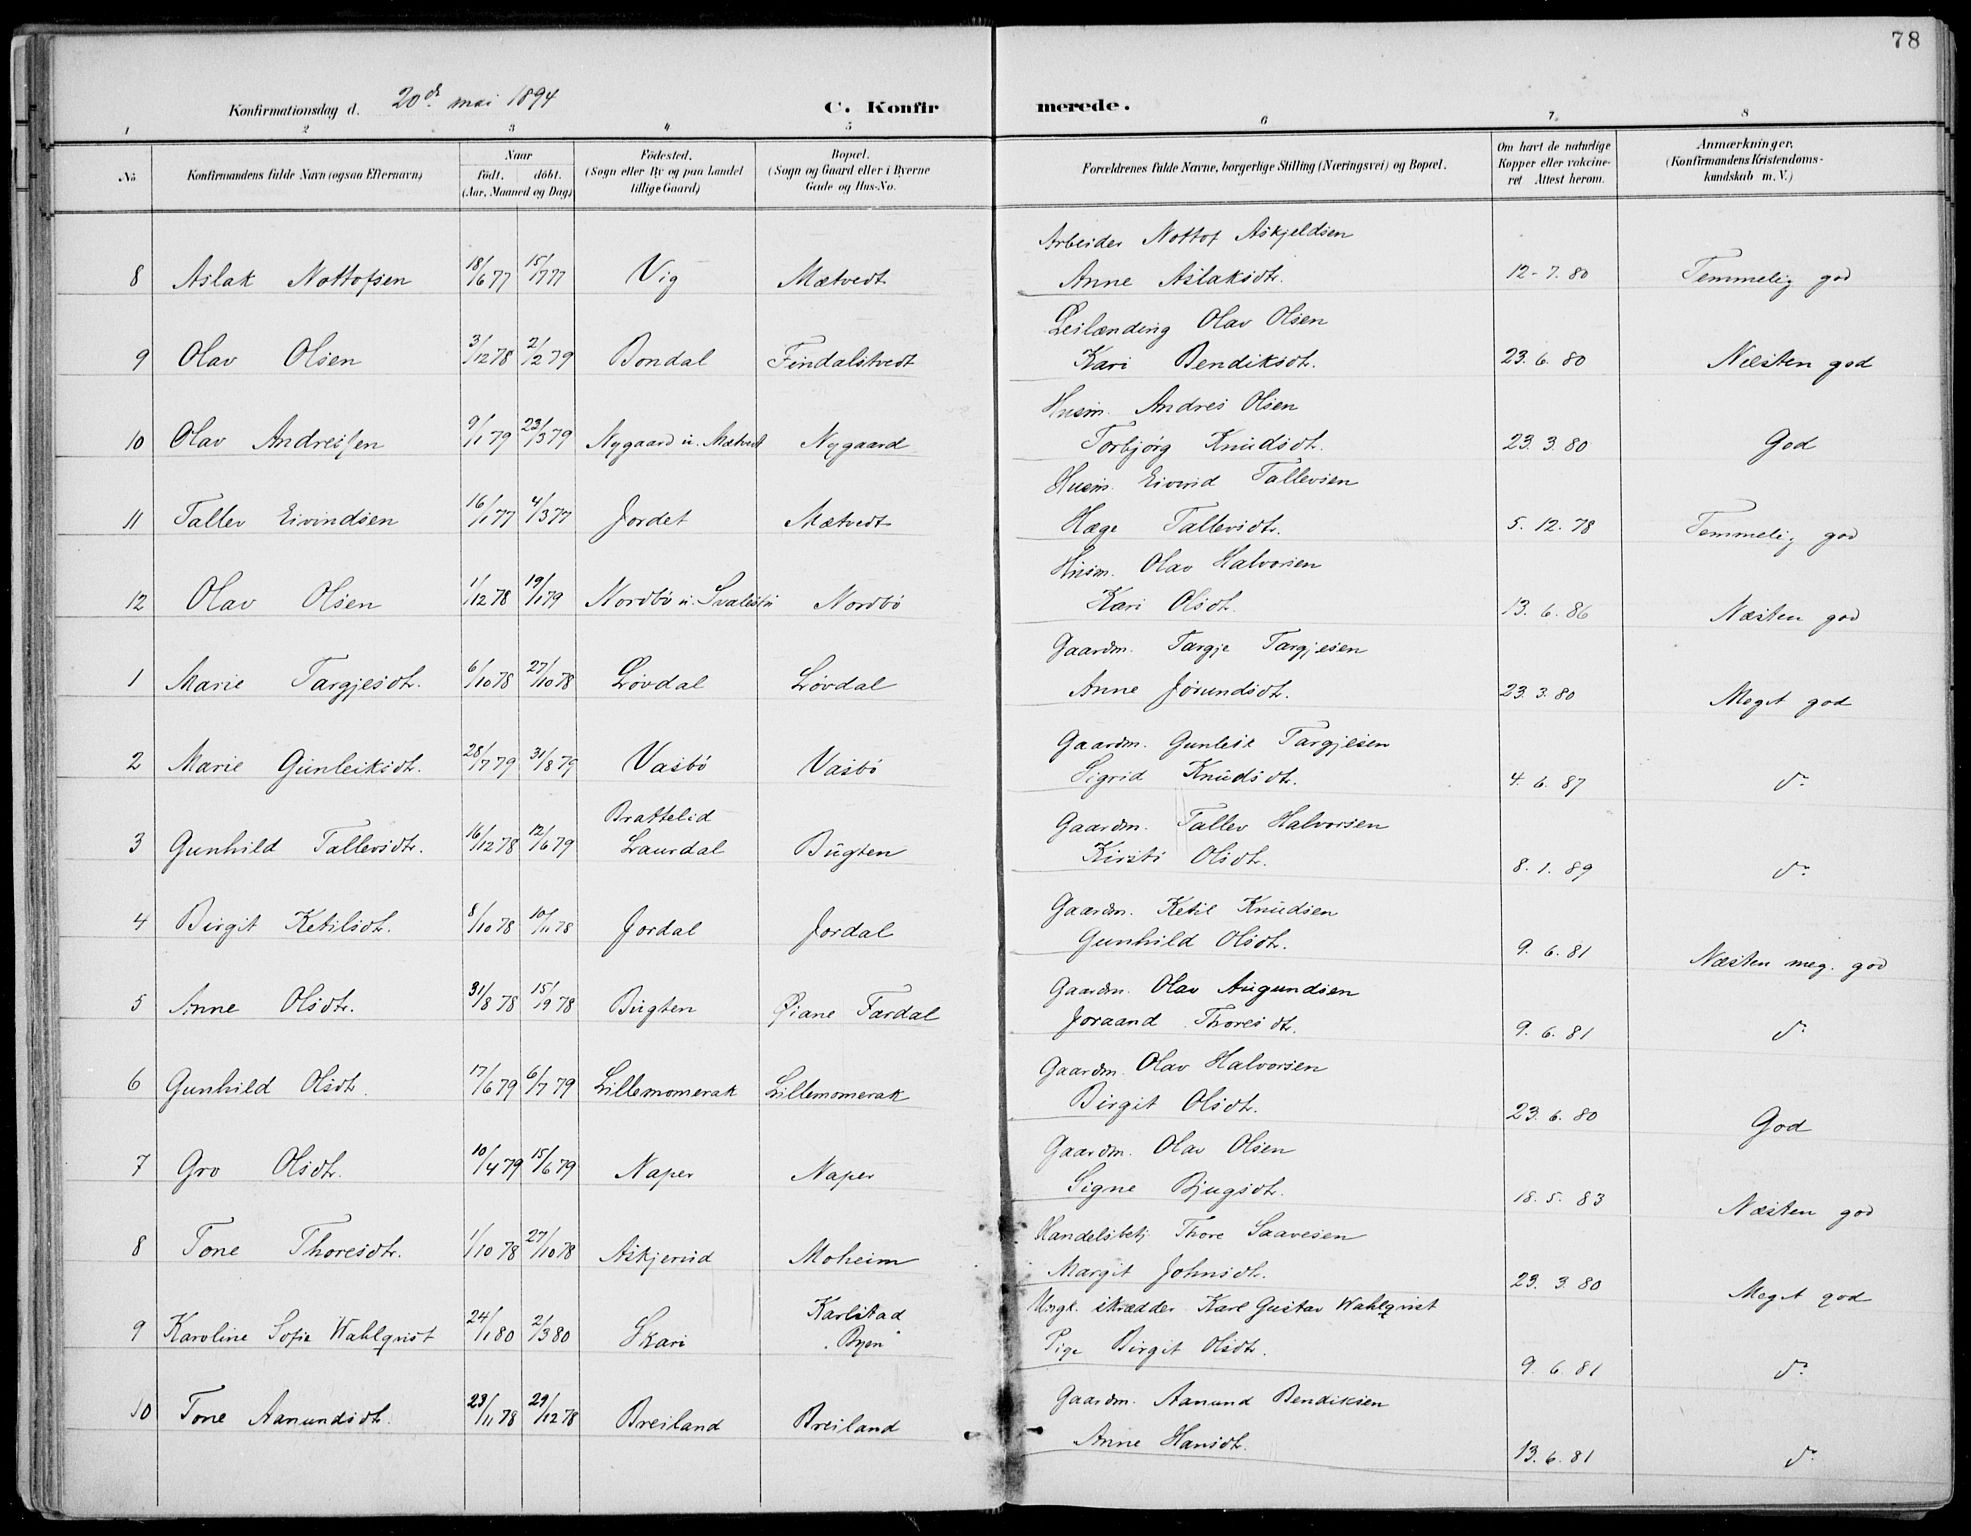 78
Konfirmationsdag d. 20de mai 1894
C. Konfirmerede.
1 2 3 4 5 6 7 8
No
Konfirmandens fulde Navn (ogsaa Efternavn)
Naar
født. døbt.
(Aar, Maaned og Dag)
Fødested.
(Sogn eller By og paa Landet
tillige Gaard)
Bopæl.
(Sogn og Gaard eller i Byerne
Gade og Hus-No.
Forældrenes fulde Navne, borgerlige Stilling (Næringsvei) og Bopæl.
Om havt de naturlige
Kopper eller vakcine-
ret. Attest herom.
Anmærkninger.
(Konfirmandens Kristendoms-
kundskab m. V.)
Arbeider Nottof Askjeldsen
8 Aslak Nottofsen 18/6 77 15/7 77 Vig Mætvedt Anne Aslaksdtr. 12-7.80 Temmelig god
Leilænding Olav Olsen
9 Olav Olsen 3/12 78 2/2 79 Bondal Findalstvedt Kari Bendiksdtr. 23.6.80 Næsten god
Husm. Andres Olsen
10 Olav Andresen 9/1 79 23/3 79 Nygaard u. Mætvedt Nygaard Torbjørg Knudsdtr. 23.3.80 God
Husm. Eivind Tallevsen
11 Tallev Eivindsen 16/1 77 4/3 77 Jordet Mætvedt Hæge Tallevsdtr. 5.12.78 Temmelig god
Husm. Olav Halvorsen
12 Olav Olsen 1/12 78 19/1 79 Nordbø u. Svalestu Nordbø Kari Olsdtr. 13.6.86 Næsten god
Gaardm. Targje Targjesen
1 Marie Targjesdtr. 6/10 78 27/10 78 Løvdal Løvdal Anne Jørundsdtr. 23.3.80 Meget god
Gaardm. Gunleik Targjesen
2 Marie Gunleiksdtr. 28/7 79 31/8 79 Vasbø Vasbø Sigrid Knudsdtr. 4.6.87 do
Brattelid
Gaardm. Tallev Halvorsen
3 Gunhild Tallevsdtr. 16/12 78 12/6 79 Laurdal Bugten Kirsti Olsdtr. 8.1.89 do
Gaardm. Ketil Knudsen
4 Birgit Ketilsdtr. 8/10 78 10/11 78 Jordal Jordal Gunhild Olsdtr. 9.6.81 Næsten meg. god
Gaardm. Olav Augundsen
5 Anne Olsdtr. 31/8 78 15/9 78 Bugten Øiane Fardal Joraand Thoresdtr. 9.6.81 do
Gaardm. Olav Halvorsen
6 Gunhild Olsdtr. 17/6 79 6/7 79 Lillemomerak Lillemomerak Birgit Olsdtr. 23.6.80 God
Gaardm. Olav Olsen
7 Gro Olsdtr. 10/4 79 15/6 79 Naper Naper Signe Bjugsdtr. 18.5.83 Næsten god
Handelsbetj. Thore Saavesen
8 Tone Thoresdtr. 1/10 78 27/10 78 Askjerud Moheim Margit Johnsdtr. 23.3.80 Meget god
Karlstad
Ungk. skrædder Karl Gustav Wahlqvist
9 Karoline Sofie Wahlqvist 24/1 80 2/3 80 Skari "Byen" Pige Birgit Olsdtr. 9.6.81 do
Gaardm. Aanund Bendiksen
10 Tone Aanundsdtr. 23/11 78 29/12 78 Breiland Breiland Anne Hansdtr. 13.6.81 do